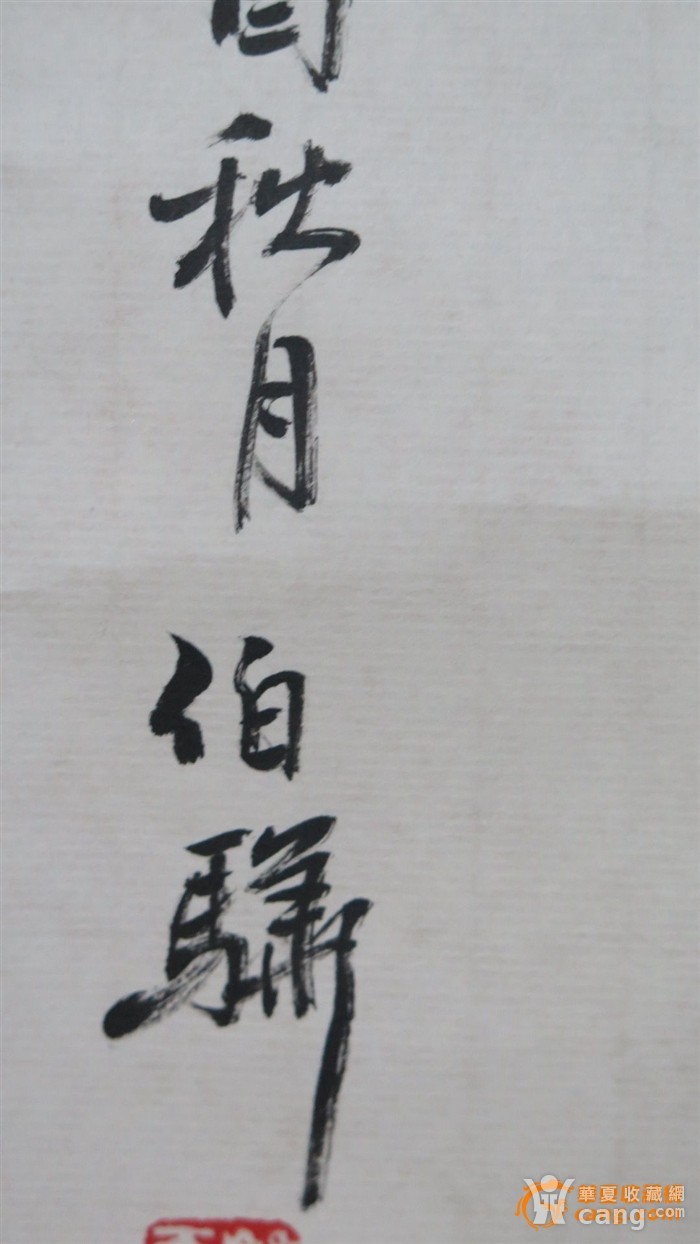 秋月 伯驊
華夏收藏網
cang.com